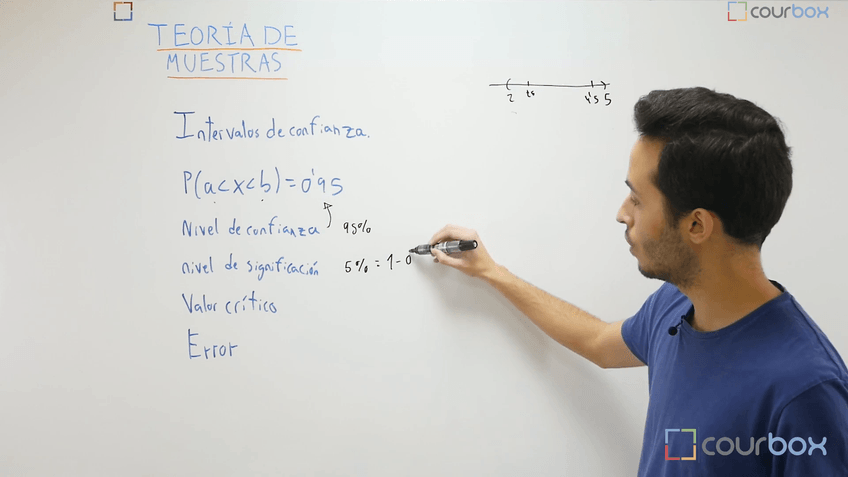 TEORÍA DE
MUESTRAS
courbox
Intervalos de confianza.
P(a<x<b)=0'95
Nivel de confianza 95%
nivel de significación 5% = 1-0
Valor crítico
Error
2
4's 5
courbox